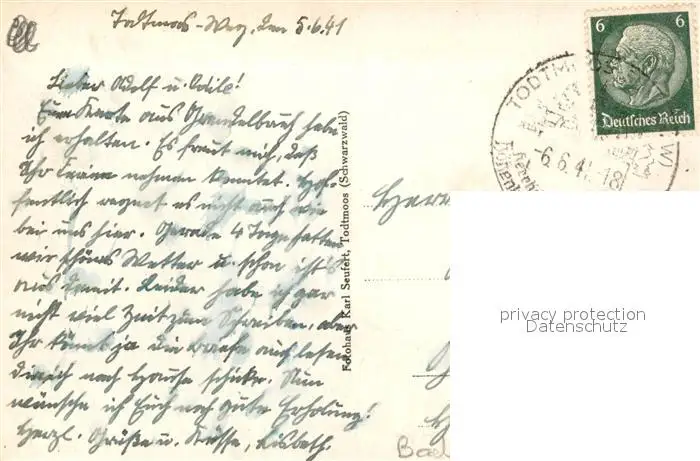 Todtmoos-Weg, den 5.6.41
Lieber Adolf u. Odile!
Eure Karte aus habe
ich erhalten. Es freut mich, daß
Ihr Ferien nehmen konntet. Hof-
fentlich regnet es nicht auch wie
bei uns hier. Gerade 4 Tage hatten
wir schönes Wetter u. schon ist's
aus damit. Leider habe ich gar
nicht viel Zeit zum Schreiben, aber
Ihr könnt ja die auch lesen
die ich nach Hause schicke. Nun
wünsche ich Euch noch gute Erholung!
Herzl. Grüße u. Küsse, Lisbeth.
Fotohaus Karl Seufert, Todtmoos (Schwarzwald)
6 6
Deutsches Reich
TODTMOOS
-6.6.41.-18
Herrn
privacy protection
Datenschutz